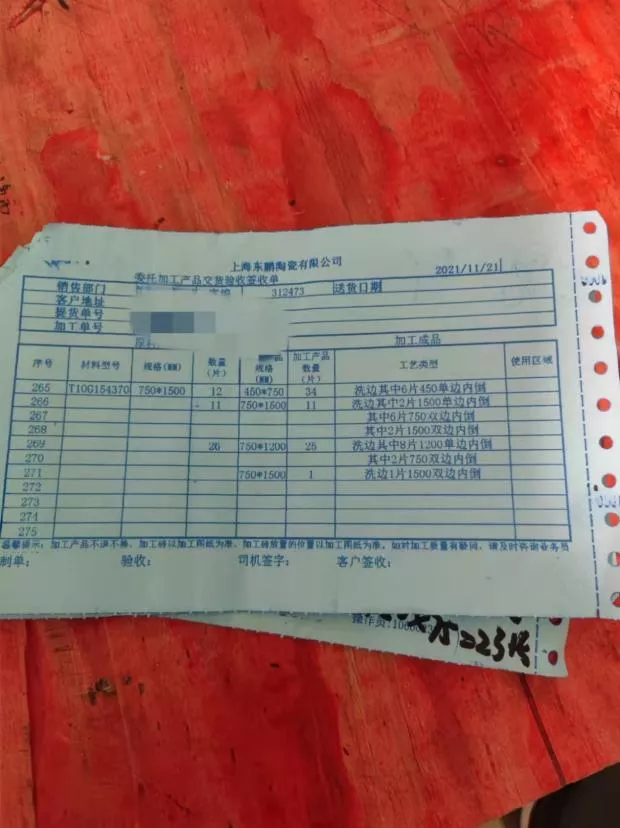 上海东鹏陶瓷有限公司
委托加工产品交货验收签收单 2021/11/21
销售部门 312473 送货日期
客户地址
提货单号
加工单号
加工成品
序号 材料型号 规格(MM) 数量(片) 规格(MM) 加工产品数量(片) 工艺类型 使用区域
265 T10G154370 750*1500 12 450*750 34 洗边其中6片450单边内倒
266 11 750*1500 11 洗边其中2片1500单边内倒
267 其中6片750双边内倒
268 其中2片1500双边内倒
269 26 750*1200 25 洗边其中8片1200单边内倒
270 其中2片750双边内倒
271 750*1500 1 洗边1片1500双边内倒
272
273
274
275
温馨提示：加工产品不退不换，加工砖以加工图纸为准，加工砖放置的位置以加工图纸为准。如对加工数量有疑问，请及时咨询业务员
制单： 验收： 司机签字： 客户签收：
操作员:
=23块